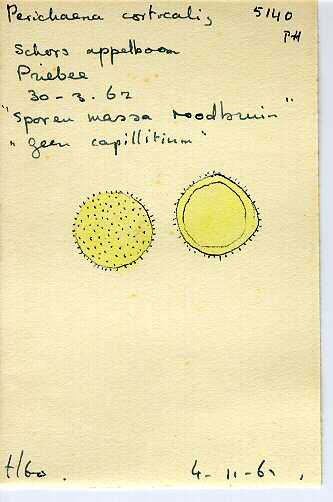 Perichaena corticalis 5140
PH
Schors appelboom
Priebee
30-3.62
"Sporen massa roodbruin"
"geen capillitium"
4-11-62